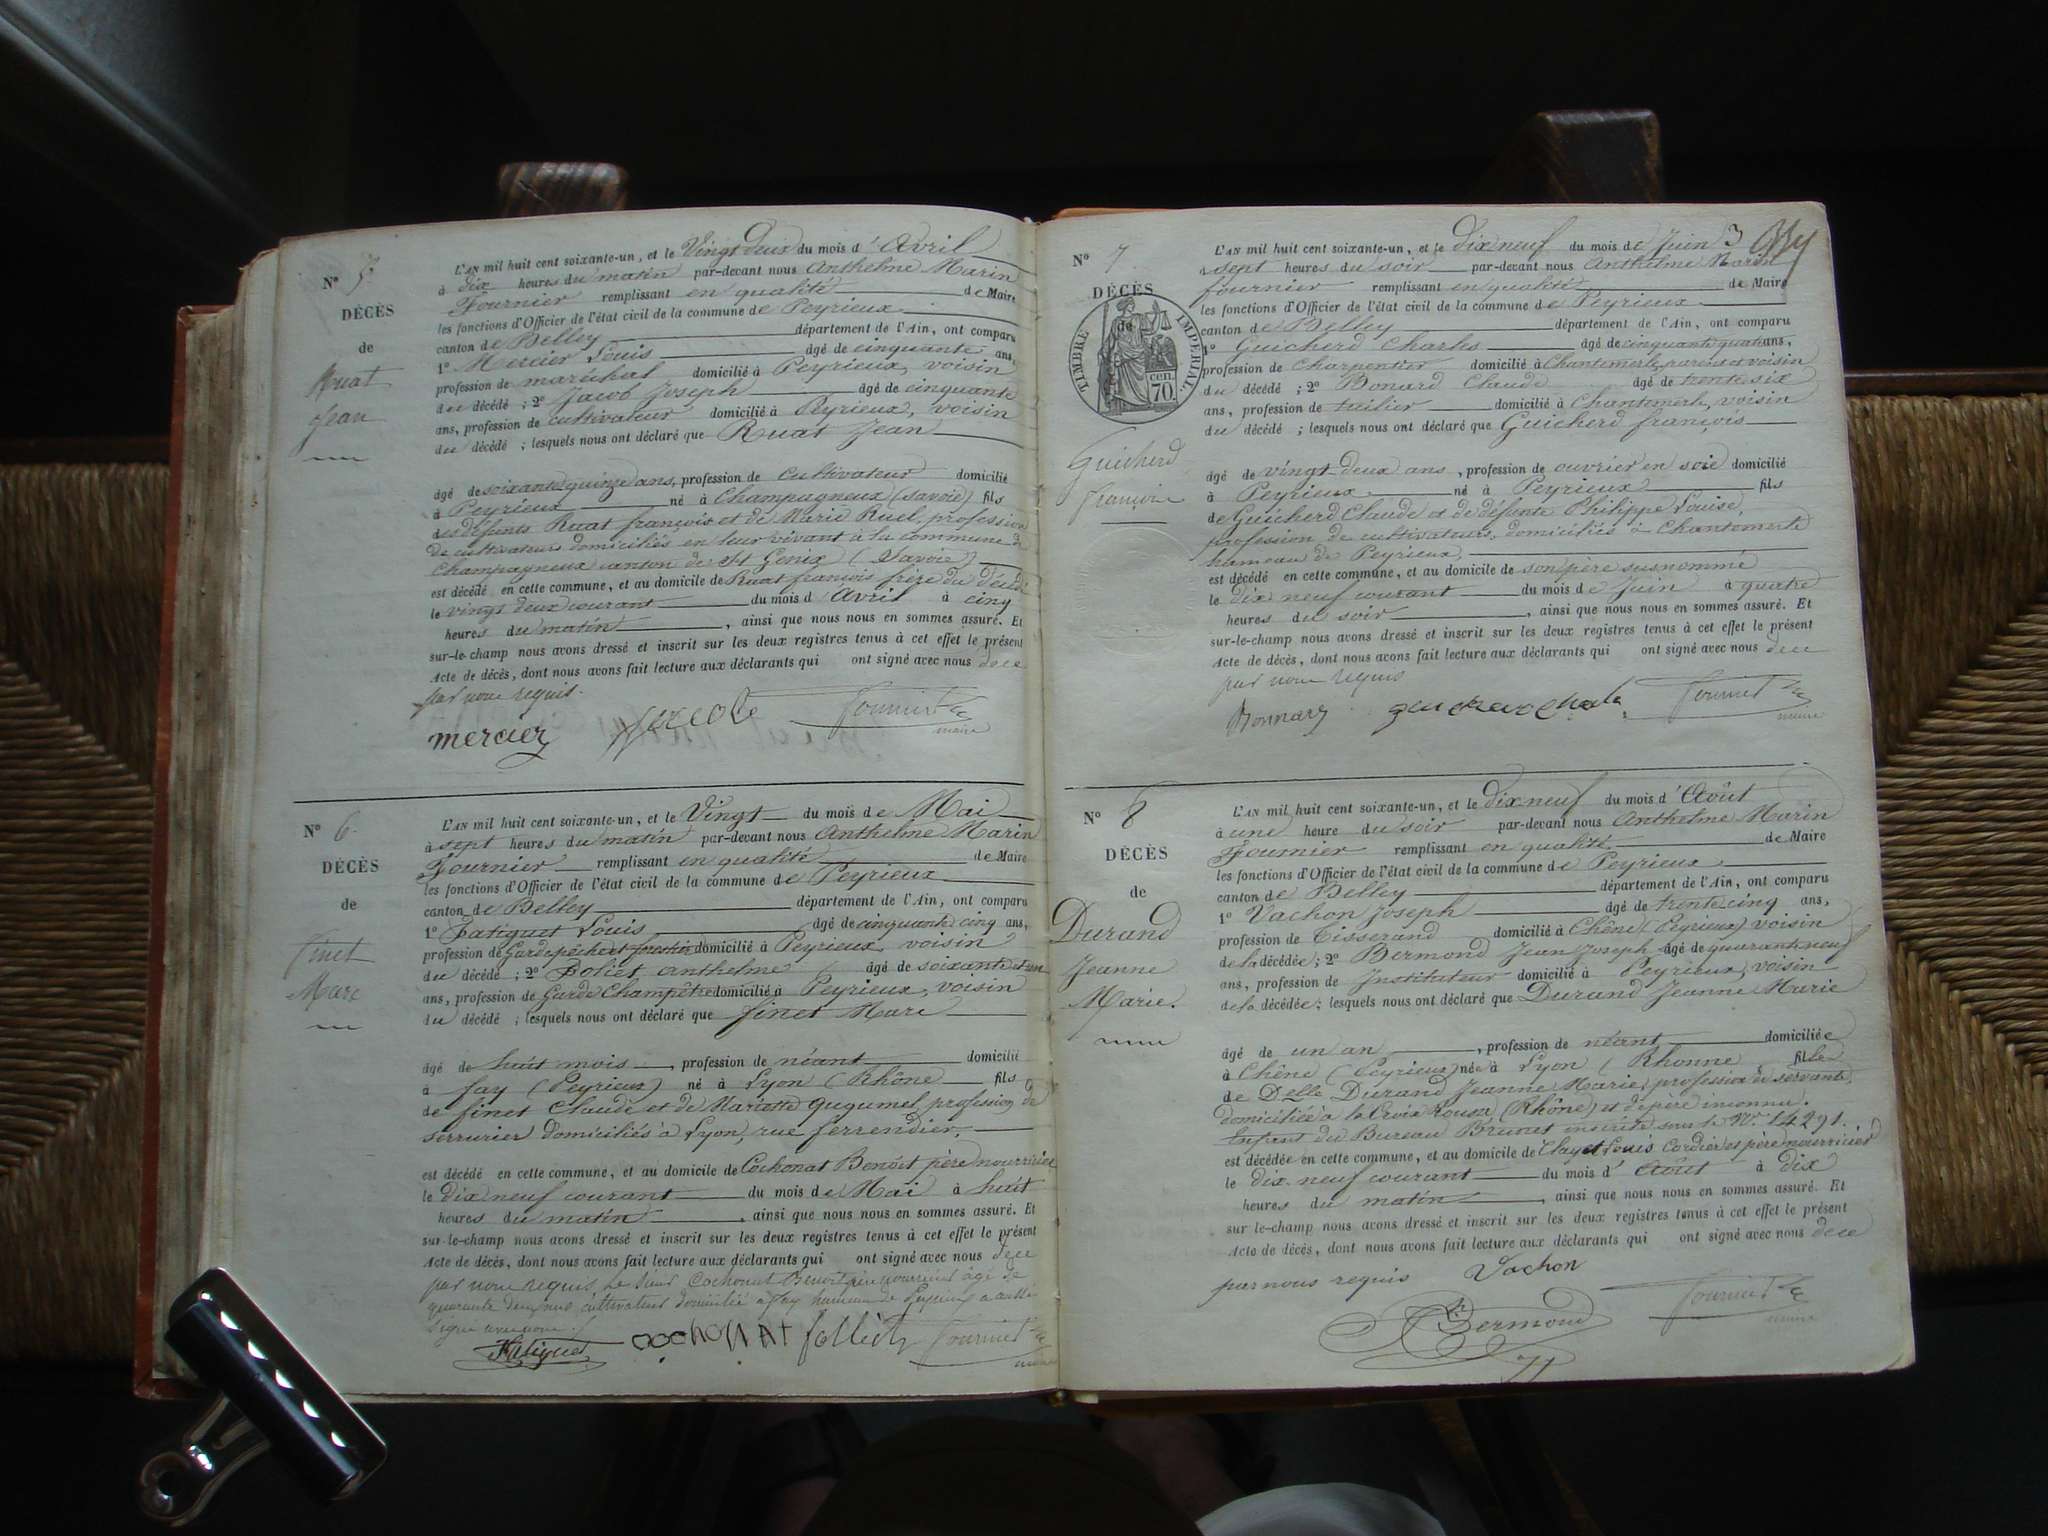 N° 5.
DÉCÈS
de
Ruat
Jean
L'AN mil huit cent soixante-un, et le Vingt Deux du mois d'Avril
à dix heures du matin par-devant nous Anthelme Marin
Fournier remplissant en qualité de Maire
les fonctions d'Officier de l'état civil de la commune de Peyrieux
canton de Belley département de l'Ain, ont comparu
1° Mercier Louis âgé de cinquante ans,
profession de maréchal domicilié à Peyrieux, voisin
du décédé ; 2° Jacob Joseph âgé de cinquante
ans, profession de cultivateur domicilié à Peyrieux, voisin
du décédé ; lesquels nous ont déclaré que Ruat Jean
âgé de soixante quinze ans, profession de cultivateur domicilié
à Peyrieux né à Champagneux (Savoie) fils
des défunts Ruat françois et de Marie Ruel, profession
de cultivateurs domiciliés en leur vivant à la commune de
Champagneux canton de St Genix (Savoie)
est décédé en cette commune, et au domicile de Ruat françois frère du décédé
le vingt deux courant du mois d'Avril à cinq
heures du matin, ainsi que nous nous en sommes assuré. Et
sur-le-champ nous avons dressé et inscrit sur les deux registres tenus à cet effet le présent
Acte de décès, dont nous avons fait lecture aux déclarants qui ont signé avec nous de ce
par nous requis.
mercier Fournier
maire
N° 6.
DÉCÈS
de
Finet
Marc
L'AN mil huit cent soixante-un, et le Vingt du mois de Mai
à sept heures du matin par-devant nous Anthelme Marin
Fournier remplissant en qualité de Maire
les fonctions d'Officier de l'état civil de la commune de Peyrieux
canton de Belley département de l'Ain, ont comparu
1° Fatiguet Louis âgé de cinquante cinq ans,
profession de Gardepêche domicilié à Peyrieux, voisin
du décédé ; 2° Poliet anthelme âgé de soixante et un
ans, profession de Garde Champêtre domicilié à Peyrieux, voisin
du décédé ; lesquels nous ont déclaré que finet Marc
âgé de huit mois, profession de néant domicilié
à fay (Peyrieux) né à Lyon (Rhône fils
de finet Claude et de Mariette Gugumel, profession de
serrurier domiciliés à Lyon, rue ferrendier,
est décédé en cette commune, et au domicile de Cochonat Benoît père nourricier
le dix neuf courant du mois de Mai à huit
heures du matin, ainsi que nous nous en sommes assuré. Et
sur-le-champ nous avons dressé et inscrit sur les deux registres tenus à cet effet le présent
Acte de décès, dont nous avons fait lecture aux déclarants qui ont signé avec nous de ce
par nous requis, Le Sieur Cochonat Benoît père nourricier âgé de
quarante deux ans cultivateur domicilié à fay hameau de Peyrieux a aussi
signé avec nous.
Fatiguet cochonat Fournier
maire
3
N° 7
DÉCÈS
de
TIMBRE IMPÉRIAL
70 cen.
Guicherd
François
L'AN mil huit cent soixante-un, et le Dix neuf du mois de Juin
à sept heures du soir par-devant nous Anthelme Marin
fournier remplissant en qualité de Maire
les fonctions d'Officier de l'état civil de la commune de Peyrieux
canton de Belley département de l'Ain, ont comparu
1° Guicherd Charles âgé de cinquante quatre ans,
profession de Charpentier domicilié à Chantemerle, parent et voisin
du décédé ; 2° Bonard Claude âgé de trente six
ans, profession de tuilier domicilié à Chantemerle, voisin
du décédé ; lesquels nous ont déclaré que Guicherd françois
âgé de vingt deux ans, profession de ouvrier en soie domicilié
à Peyrieux né à Peyrieux fils
de Guicherd Claude et de défunte Philippe Louise,
profession de cultivateurs, domiciliés à Chantemerle
hameau de Peyrieux,
est décédé en cette commune, et au domicile de son père susnommé
le dix neuf courant du mois de Juin à quatre
heures du soir, ainsi que nous nous en sommes assuré. Et
sur-le-champ nous avons dressé et inscrit sur les deux registres tenus à cet effet le présent
Acte de décès, dont nous avons fait lecture aux déclarants qui ont signé avec nous de ce
par nous requis
Bonnard Fournier
maire
N° 8
DÉCÈS
de
Durand
Jeanne
Marie.
L'AN mil huit cent soixante-un, et le dix neuf du mois d'Août
à une heure du soir par-devant nous Anthelme Marin
Fournier remplissant en qualité de Maire
les fonctions d'Officier de l'état civil de la commune de Peyrieux
canton de Belley département de l'Ain, ont comparu
1° Vachon Joseph âgé de trente cinq ans,
profession de Tisserand domicilié à Chêne (Peyrieux) voisin
de la décédée ; 2° Bermond Jean Joseph âgé de quarante neuf
ans, profession de Instituteur domicilié à Peyrieux, voisin
de la décédée ; lesquels nous ont déclaré que Durand Jeanne Marie
âgé de un an, profession de néant domiciliée
à Chêne (Peyrieux) née à Lyon (Rhonne fille
de Delle Durand Jeanne Marie, profession de servante,
domiciliée à la Croix rousse (Rhône) et de père inconnu.
Enfant du Bureau Brunet inscrite sous le N° 14291.
est décédée en cette commune, et au domicile de Clayet Louis Cordier et père nourricier
le dix neuf courant du mois d'Août à dix
heures du matin, ainsi que nous nous en sommes assuré. Et
sur-le-champ nous avons dressé et inscrit sur les deux registres tenus à cet effet le présent
Acte de décès, dont nous avons fait lecture aux déclarants qui ont signé avec nous de ce
par nous requis Vachon
Bermond Fournier
maire